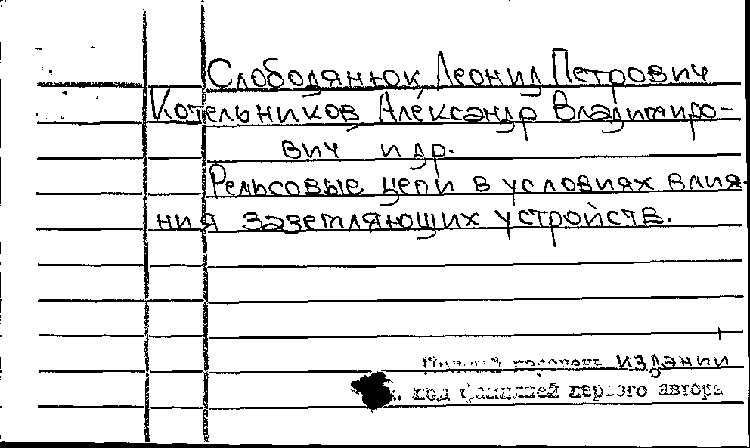 Слободянюк Леонид Петрович
Котельников Александр Владимиро-
вич и др.
Рельсовые цепи в условиях влия-
ния заземляющих устройств.
издании
под фамилией первого автора